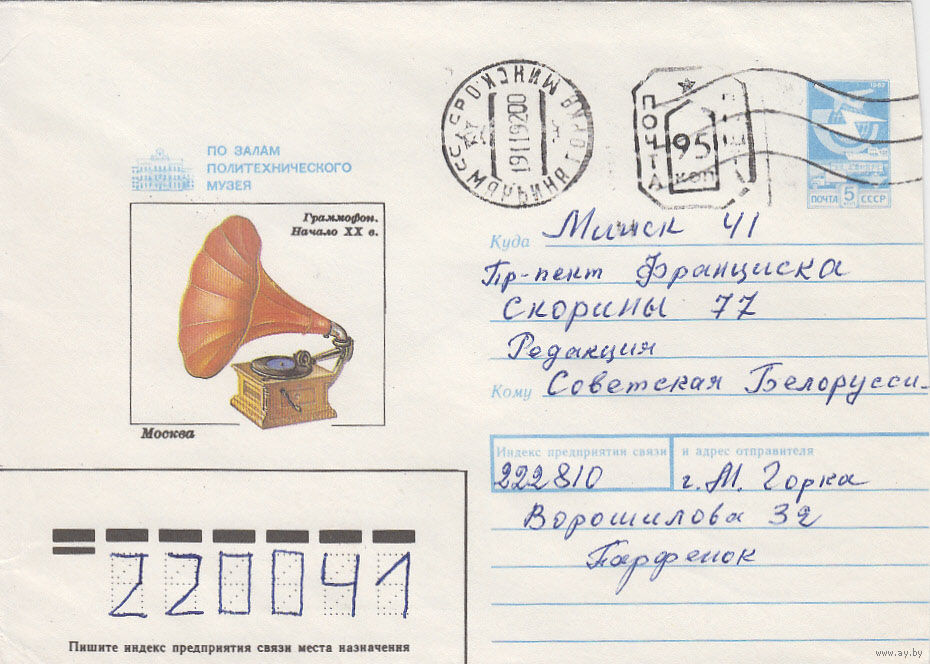 ПО ЗАЛАМ
ПОЛИТЕХНИЧЕСКОГО
МУЗЕЯ
Граммофон.
Начало XX в.
Москва
МИНСКОЙ
19119200
ПОЧТА
95
коп
1982
ПОЧТА 5 СССР
Куда Минск 41
Пр-пент Франциска
Скорины 77
Редакция
Кому Советская Белорусси
Индекс предприятия связи и адрес отправителя
222810 г. М. Горка
Ворошилова 32
Парфенок
220041
Пишите индекс предприятия связи места назначения
www.ay.by